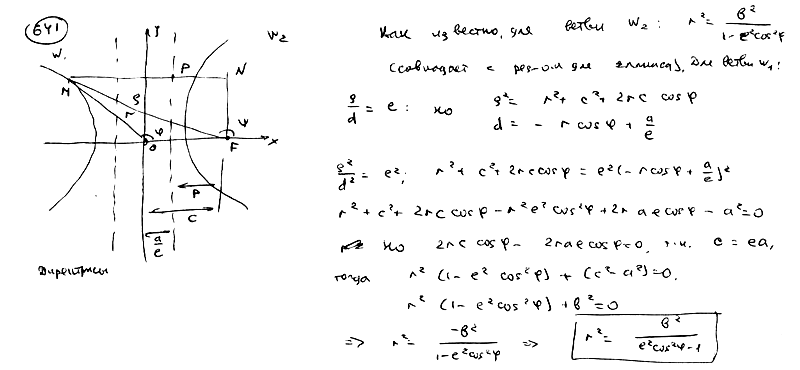 641
W₁
W₂
y
P
N
M
ρ
r
φ
ψ
O
F
x
p
c
a/e
Директрисы
Как известно, для ветви W₂: r² = b²/(1 - e²cos²φ)
(совпадает с рез-ом для эллипса). Для ветви W₁:
ρ/d = e; но ρ² = r² + c² + 2rc cos φ
d = - r cos φ + a/e
ρ²/d² = e²; r² + c² + 2rc cos φ = e²(-r cos φ + a/e)²
r² + c² + 2rc cos φ - r²e² cos²φ + 2r ae cos φ - a² = 0
но 2rc cos φ - 2rae cos φ = 0, т.к. c = ea,
тогда r² (1 - e² cos²φ) + (c² - a²) = 0.
r² (1 - e² cos²φ) + b² = 0
=> r² = -b²/(1 - e²cos²φ) => r² = b²/(e²cos²φ - 1)